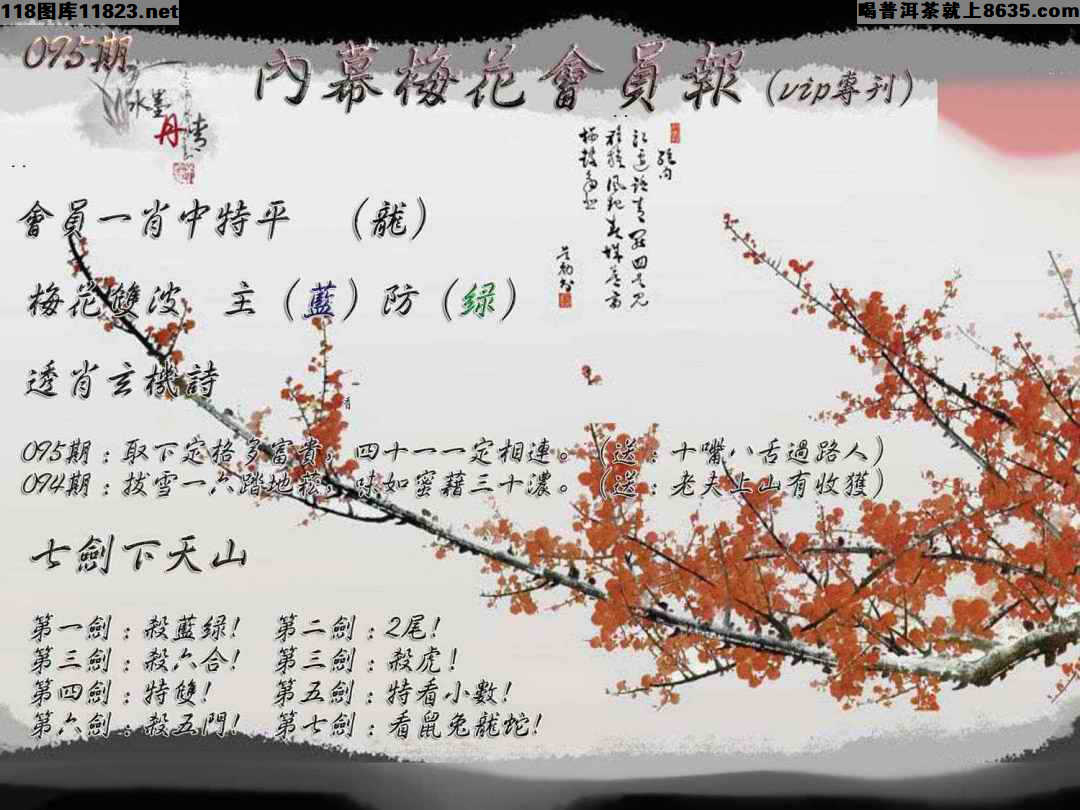 118图库11823.net
喝普洱茶就上8635.com
095期
內幕梅花會員報(vip專刊)
水墨
丹青
會員一肖中特平 （龍）
梅花雙波 主（藍）防（绿）
透肖玄機詩
095期：取下定格多富貴，四十一一定相連。（送：十嘴八舌過路人）
094期：拔雪一六踏地菘，味如蜜藉三十濃。（送：老夫上山有收獲）
七劍下天山
第一劍：殺藍绿! 第二劍：2尾!
第三劍：殺六合! 第三劍：殺虎!
第四劍：特雙! 第五劍：特看小數!
第六劍：殺五門! 第七劍：看鼠兔龍蛇!